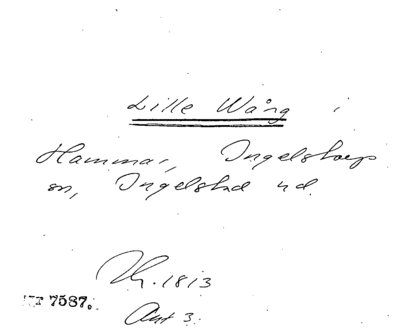 Lille Wång i
Hammar, Ingelstorps
sn, Ingelstad hd
Th. 1813
7587.
Ant 3.